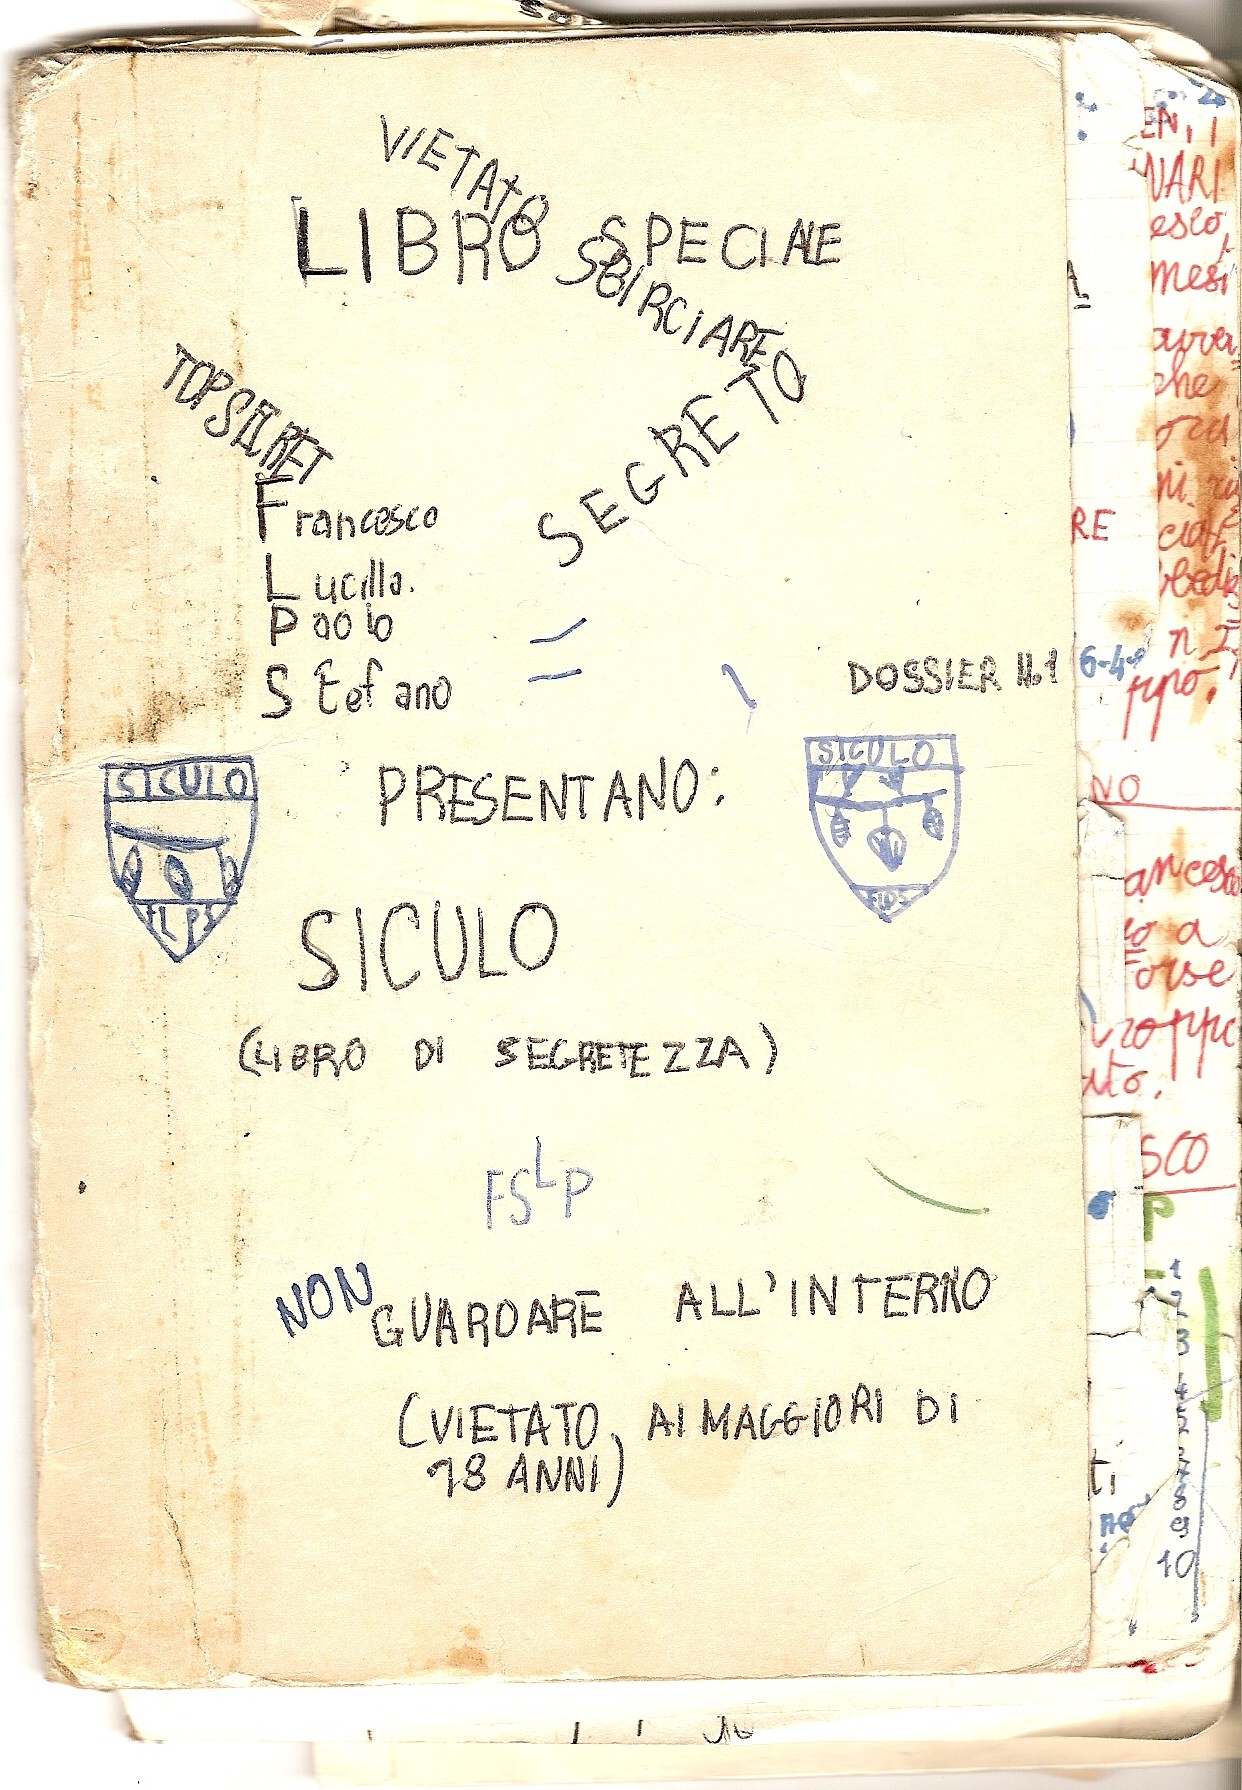 VIETATO
LIBRO SPECIALE
SBIRCIARE
TOP SECRET
SEGRETO
Francesco
Lucilla.
Paolo
Stefano
DOSSIER N.1
SICULO
FLPS
PRESENTANO:
SICULO
FLPS
SICULO
(LIBRO DI SEGRETEZZA)
FSLP
NON
GUARDARE ALL'INTERNO
(VIETATO AI MAGGIORI DI
18 ANNI)
EN, I
NARI
esco,
mesi
che
RE
6-4
n I
ppo.
NO
ancesco
a
orse
roppo
uto.
SCO
P
1
2
3
4
5
7
8
9
10
ti